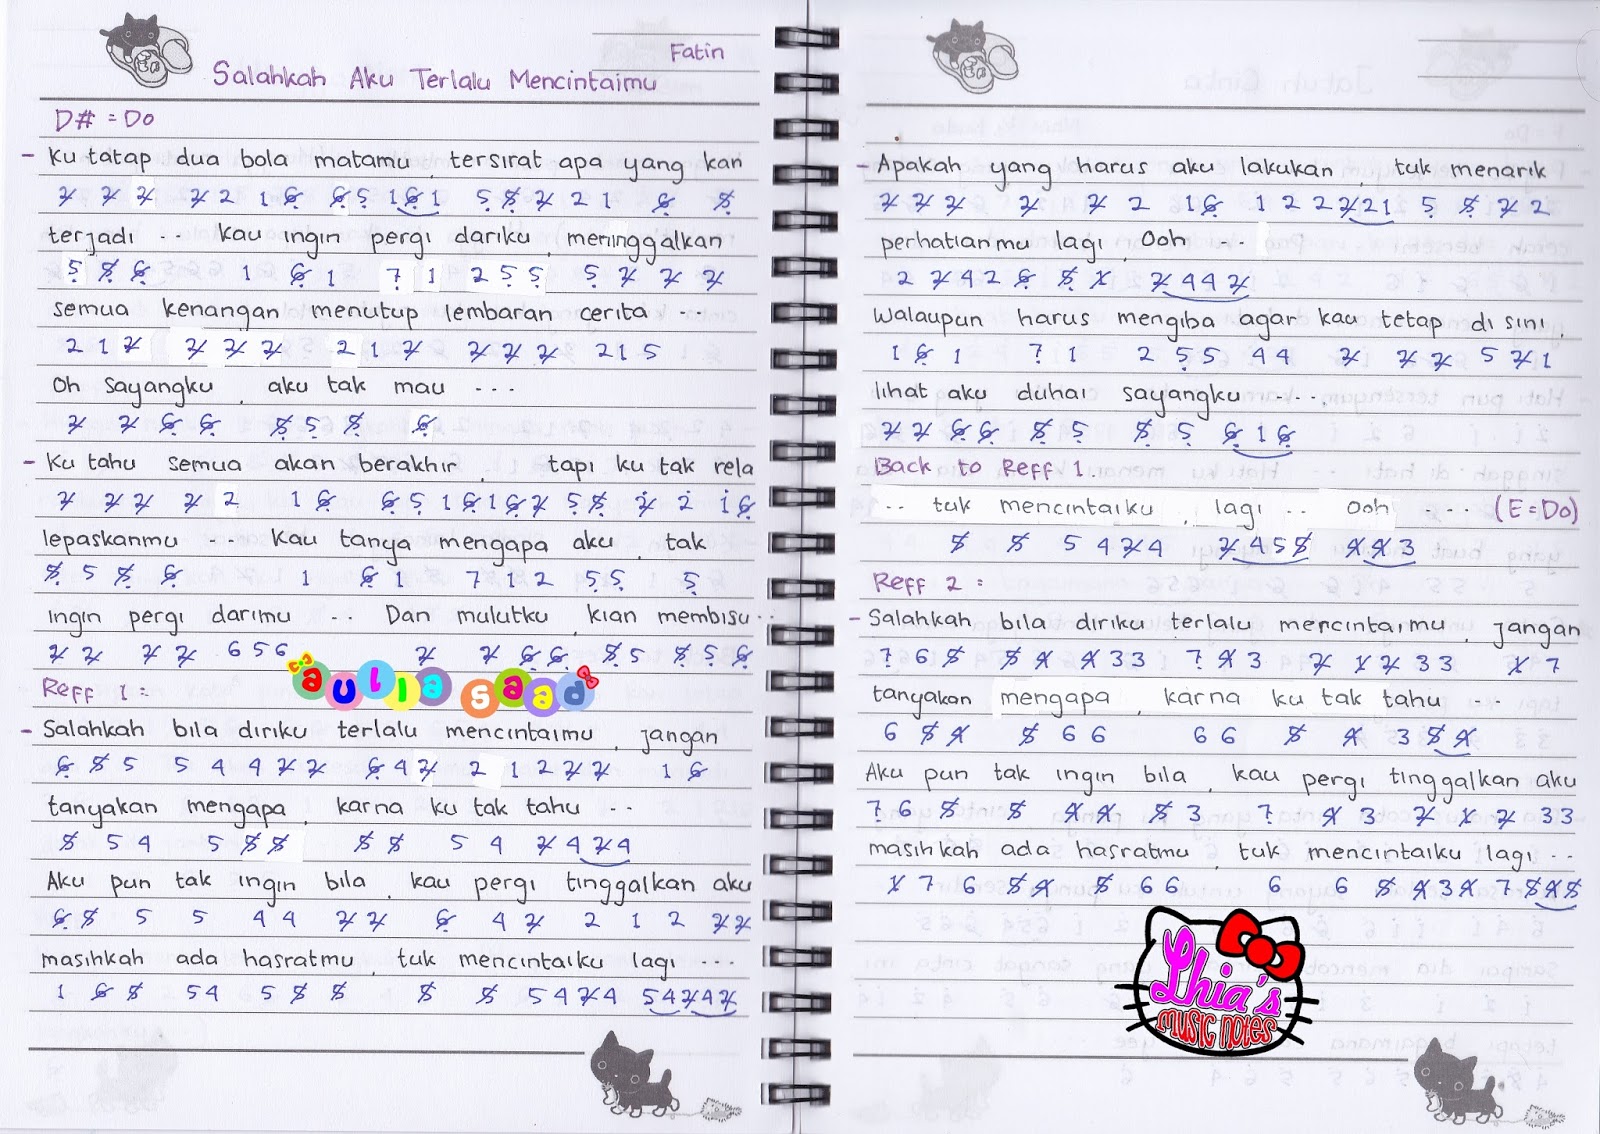 Fatin
Salahkah Aku Terlalu Mencintaimu
D# = Do
- Ku tatap dua bola matamu, tersirat apa yang kan
2 2 2 2 2 1 6 6 5 1 6 1 5 5 2 2 1 6 5
terjadi ... kau ingin pergi dariku, meninggalkan
5 5 6 1 6 1 7 1 2 5 5 5 2 2 2
semua kenangan menutup lembaran cerita ...
2 1 2 2 2 2 2 1 2 2 2 2 2 1 5
Oh sayangku, aku tak mau ...
2 2 6 6 5 5 5 6
- Ku tahu semua akan berakhir, tapi ku tak rela
2 2 2 2 2 1 6 6 5 1 6 1 6 2 5 5 2 2 1 6
lepaskanmu ... kau tanya mengapa aku, tak
5 5 5 6 1 6 1 7 1 2 5 5 5
ingin pergi darimu .. Dan mulutku, kian membisu ..
2 2 2 2 6 5 6 2 2 6 6 5 5 5 5 6
Reff 1 :
aulia saad
- Salahkah bila diriku terlalu mencintaimu, jangan
6 5 5 5 4 4 2 2 6 4 2 2 1 2 2 2 1 6
tanyakan mengapa, karna ku tak tahu ..
5 5 4 5 5 5 5 5 5 4 2 4 2 4
Aku pun tak ingin bila, kau pergi tinggalkan aku
6 5 5 5 4 4 2 2 6 4 2 2 1 2 2 2
masihkah ada hasratmu, tuk mencintaiku lagi ...
1 6 5 5 4 5 5 5 5 5 5 4 2 4 5 4 2 4 2
- Apakah yang harus aku lakukan, tuk menarik
2 2 2 2 2 2 1 6 1 2 2 2 2 1 5 5 2 2
perhatianmu lagi, Ooh ...
2 2 4 2 6 5 1 2 4 4 2
Walaupun harus mengiba agar kau tetap di sini,
1 6 1 7 1 2 5 5 4 4 2 2 2 5 2 1
lihat aku duhai sayangku ....
2 2 6 6 5 5 5 5 6 1 6
Back to Reff 1.
.. tuk mencintaiku, lagi .. Ooh ... (E = Do)
5 5 5 4 2 4 2 4 5 5 4 4 3
Reff 2 :
- Salahkah bila diriku terlalu mencintaimu, jangan
7 6 5 5 4 4 3 3 7 4 3 2 1 2 3 3 1 7
tanyakan mengapa, karna ku tak tahu ...
6 5 4 5 6 6 6 6 5 4 3 5 4
Aku pun tak ingin bila, kau pergi tinggalkan aku
7 6 5 5 4 4 5 3 7 4 3 2 1 2 3 3
masihkah ada hasratmu, tuk mencintaiku lagi ..
1 7 6 5 4 5 6 6 6 6 5 4 3 4 7 5 4 5
Lhia's
MUSIC NOTES